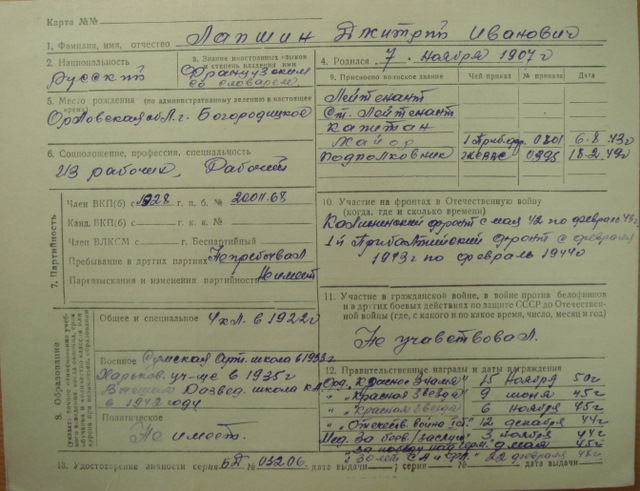 Карта №№
1. Фамилия, имя, отчество Лапшин Дмитрий Иванович
2. Национальность Русский
3. Знание иностранных языков и степень владения ими Французским со словарем
4. Родился 7 ноября 1907 г
5. Место рождения (по административному делению в настоящее время)
Орловская обл. г. Богородицкое
6. Соцположение, профессия, специальность
Из рабочих, Рабочий
9. Присвоено воинское звание Чей приказ № приказа Дата
Лейтенант
Ст. Лейтенант
Капитан
Майор 1 Приб.фр. 0801 6.8.43г
Подполковник 18.2.49г
7. Партийность
Член ВКП(б) с 1928 г. п. б. № 2001168
Канд. ВКП(б) с г. к. к. №
Член ВЛКСМ с г. Беспартийный
Пребывание в других партиях Не пребывал
Партвзыскания и изменения партийности Не имеет
10. Участие на фронтах в Отечественную войну
(когда, где и сколько времени)
Калининский фронт с мая 42 по февраль 43 г,
1й Прибалтийский фронт с февраля
1943 г по февраль 1944 г
11. Участие в гражданской войне, в войне против белофиннов
и в других боевых действиях по защите СССР до Отечествен-
ной войны (где, с какого и по какое время, число, месяц и год)
Не участвовал.
8. Образование
Общее и специальное 4 кл. в 1922 г
Военное Сумская Арт. школа в 1933 г
Харьков. уч-ще в 1935 г
Развед. школа КА
в 1942 году
Политическое
Не имеет.
12. Правительственные награды и даты награждения
Орд. "Красное Знамя" 15 ноября 50 г
" "Красная Звезда" 9 июня 45 г
" "Красная Звезда" 6 ноября 45 г
" "Отечеств. войны 1 ст." 12 декабря 44 г
Мед. "За боев. заслуги" 3 ноября 44 г
" "За победу над герм." 9 мая 45 г
" "30 лет СА и ФЛ" 22 февраля 48 г
13. Удостоверение личности серия БД № 03206. дата выдачи ; серия № дата выдачи